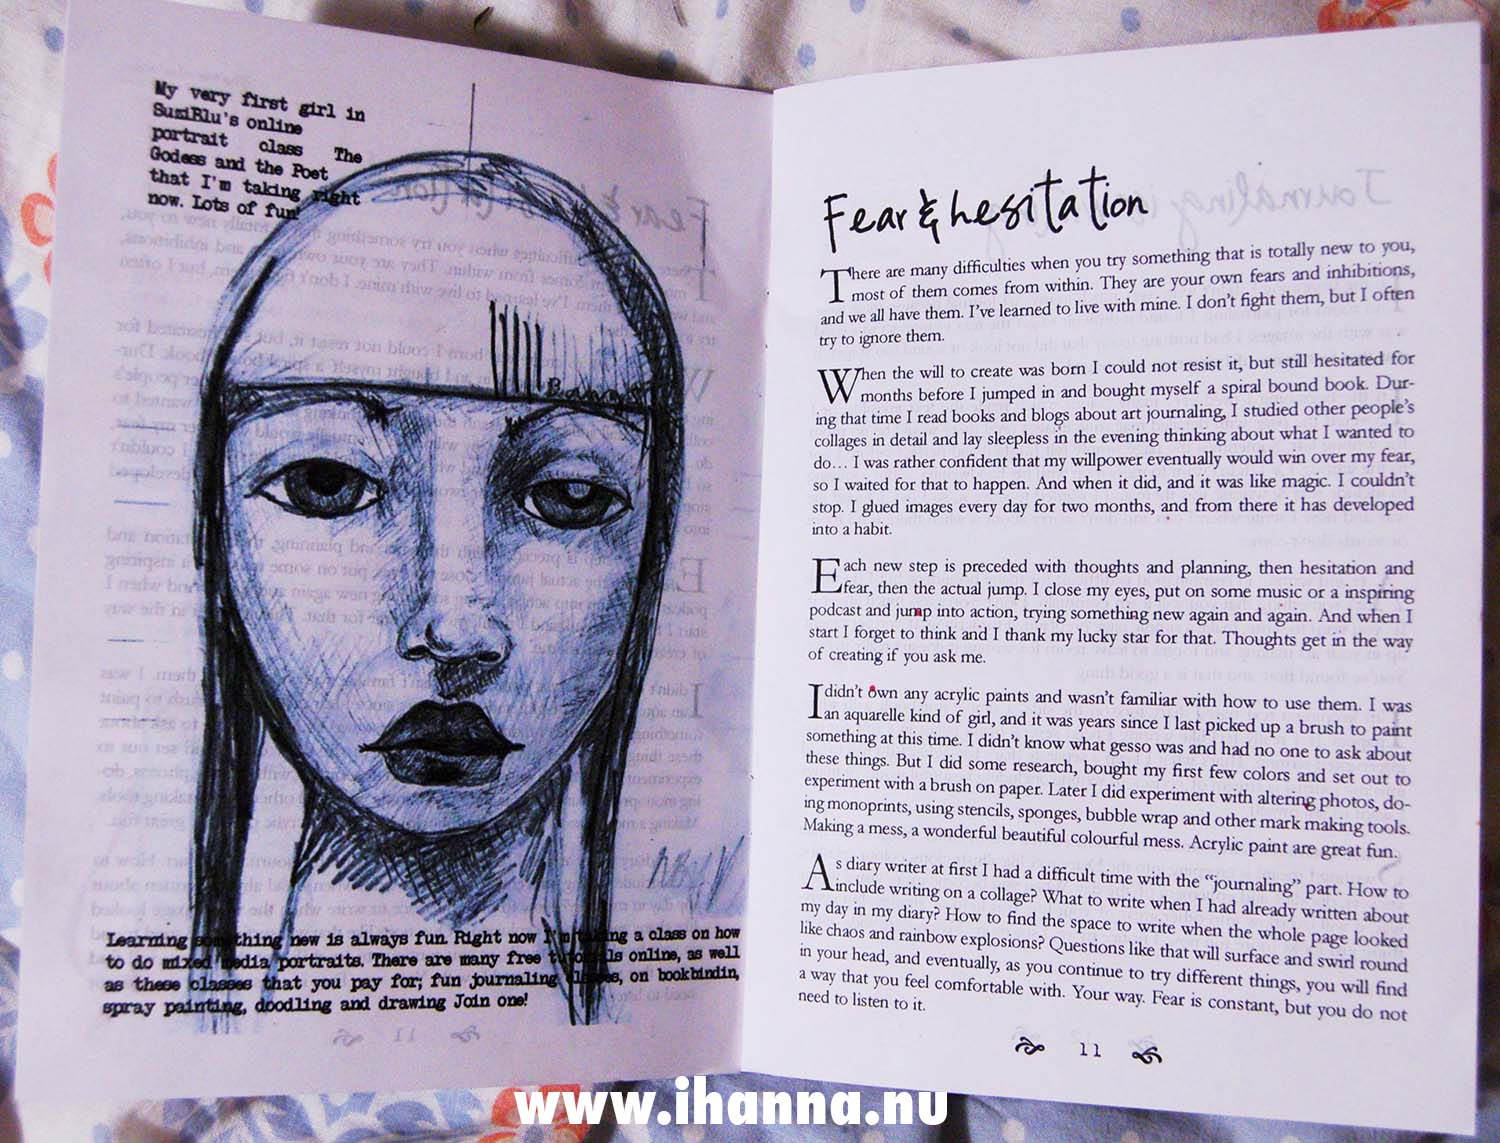 My very first girl in
SuziBlu's online
portrait class The
Godess and the Poet
that I'm taking right
now. Lots of fun!
Bangs
Learning something new is always fun. Right now I'm taking a class on how
to do mixed media portraits. There are many free tutorials online, as well
as these classes that you pay for; fun journaling classes, on bookbindin,
spray painting, doodling and drawing Join one!
Fear & hesitation
There are many difficulties when you try something that is totally new to you,
most of them comes from within. They are your own fears and inhibitions,
and we all have them. I've learned to live with mine. I don't fight them, but I often
try to ignore them.
When the will to create was born I could not resist it, but still hesitated for
months before I jumped in and bought myself a spiral bound book. Dur-
ing that time I read books and blogs about art journaling, I studied other people's
collages in detail and lay sleepless in the evening thinking about what I wanted to
do... I was rather confident that my willpower eventually would win over my fear,
so I waited for that to happen. And when it did, and it was like magic. I couldn't
stop. I glued images every day for two months, and from there it has developed
into a habit.
Each new step is preceded with thoughts and planning, then hesitation and
fear, then the actual jump. I close my eyes, put on some music or a inspiring
podcast and jump into action, trying something new again and again. And when I
start I forget to think and I thank my lucky star for that. Thoughts get in the way
of creating if you ask me.
I didn't own any acrylic paints and wasn't familiar with how to use them. I was
an aquarelle kind of girl, and it was years since I last picked up a brush to paint
something at this time. I didn't know what gesso was and had no one to ask about
these things. But I did some research, bought my first few colors and set out to
experiment with a brush on paper. Later I did experiment with altering photos, do-
ing monoprints, using stencils, sponges, bubble wrap and other mark making tools.
Making a mess, a wonderful beautiful colourful mess. Acrylic paint are great fun.
As diary writer at first I had a difficult time with the "journaling" part. How to
include writing on a collage? What to write when I had already written about
my day in my diary? How to find the space to write when the whole page looked
like chaos and rainbow explosions? Questions like that will surface and swirl round
in your head, and eventually, as you continue to try different things, you will find
a way that you feel comfortable with. Your way. Fear is constant, but you do not
need to listen to it.
11
www.ihanna.nu